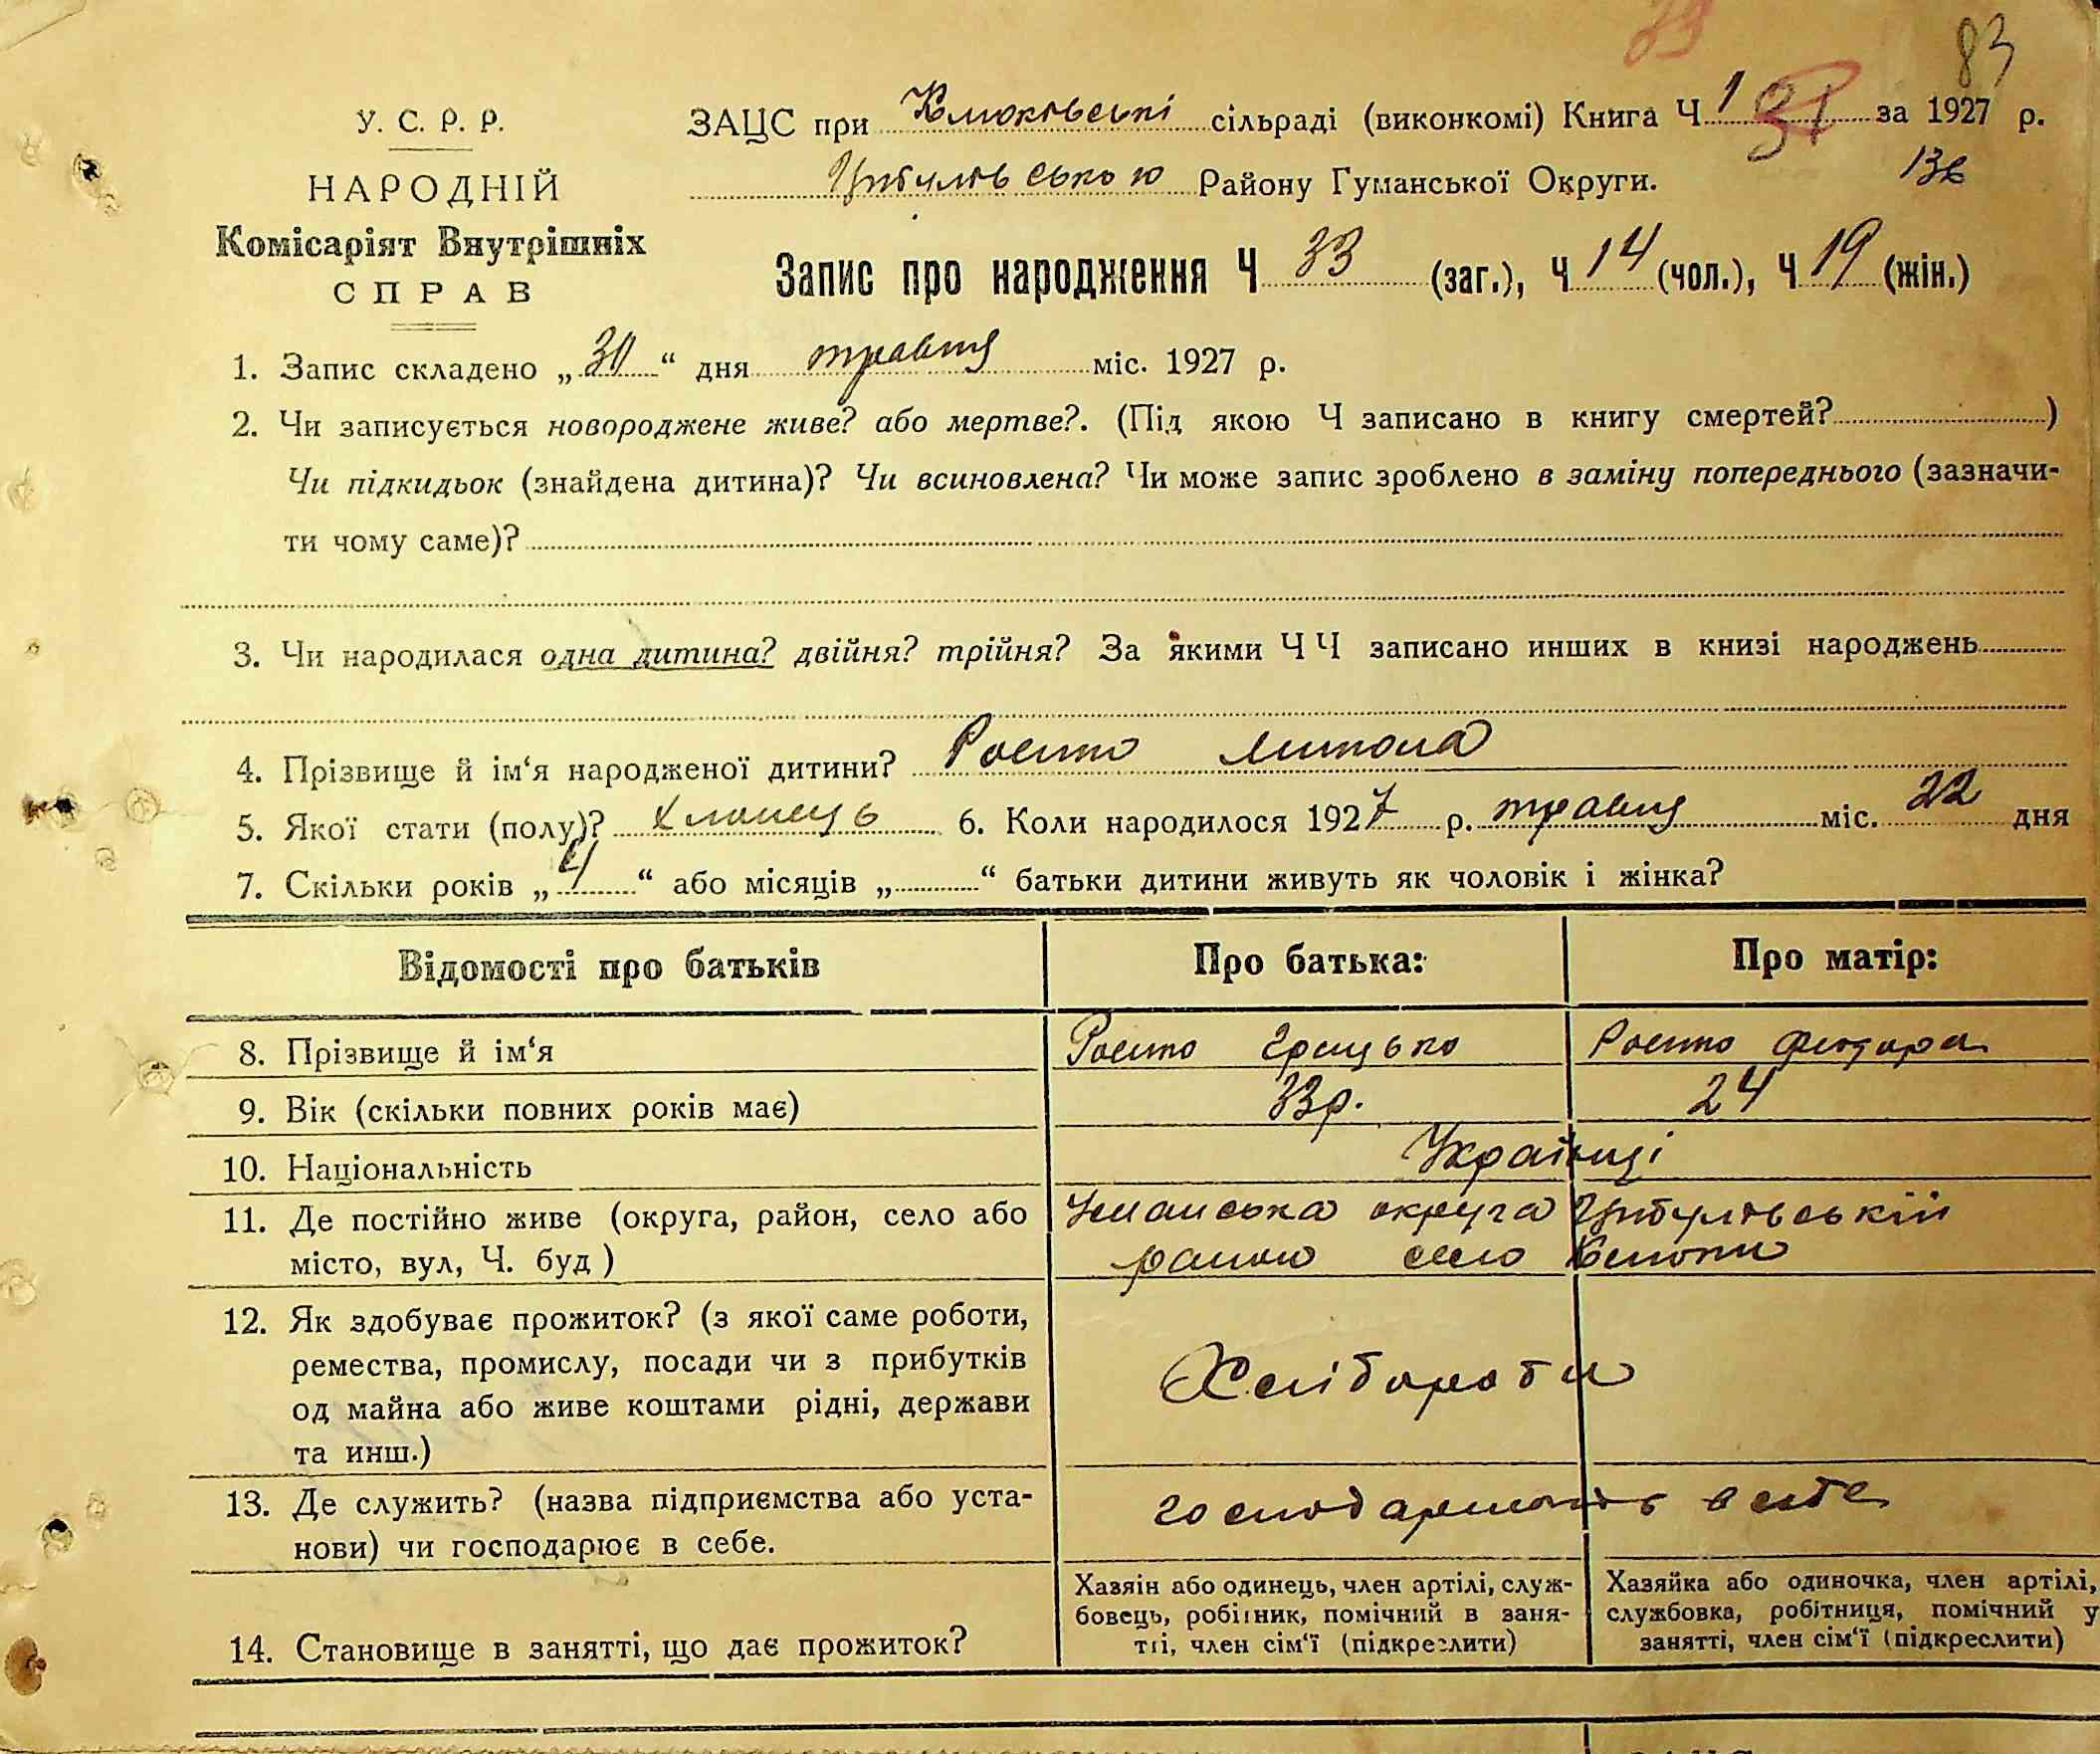 83
83
У. С. Р. Р.
НАРОДНІЙ
Комісаріят Внутрішніх
СПРАВ
ЗАЦС при Клюківські сільраді (виконкомі) Книга Ч 1 за 1927 р.
Цибулівською Району Гуманської Округи.
136
Запис про народження Ч 33 (заг.), Ч 14 (чол.), Ч 19 (жін.)
1. Запис складено „30“ дня травня міс. 1927 р.
2. Чи записується новороджене живе? або мертве?. (Під якою Ч записано в книгу смертей? )
Чи підкидьок (знайдена дитина)? Чи всиновлена? Чи може запис зроблено в заміну попереднього (зазначи-
ти чому саме)?
3. Чи народилася одна дитина? двійня? трійня? За якими Ч Ч записано инших в книзі народжень
4. Прізвище й ім‘я народженої дитини?
5. Якої стати (полу)? хлопець 6. Коли народилося 1927 р. травня міс. 22 дня
7. Скільки років „4“ або місяців „ “ батьки дитини живуть як чоловік і жінка?
Відомості про батьків
Про батька:
Про матір:
8. Прізвище й ім‘я
Грицько
9. Вік (скільки повних років має)
33р.
24
10. Національність
Українці
11. Де постійно живе (округа, район, село або
місто, вул, Ч. буд )
Уманська округа Цибулівській
район село
12. Як здобуває прожиток? (з якої саме роботи,
ремества, промислу, посади чи з прибутків
од майна або живе коштами рідні, держави
та инш.)
Хлібороби
13. Де служить? (назва підприємства або уста-
нови) чи господарює в себе.
господарюють в себе
14. Становище в занятті, що дає прожиток?
Хазяін або одинець, член артілі, служ-
бовець, робітник, помічний в заня-
тті, член сім‘ї (підкреслити)
Хазяйка або одиночка, член артілі,
службовка, робітниця, помічний у
занятті, член сім‘ї (підкреслити)